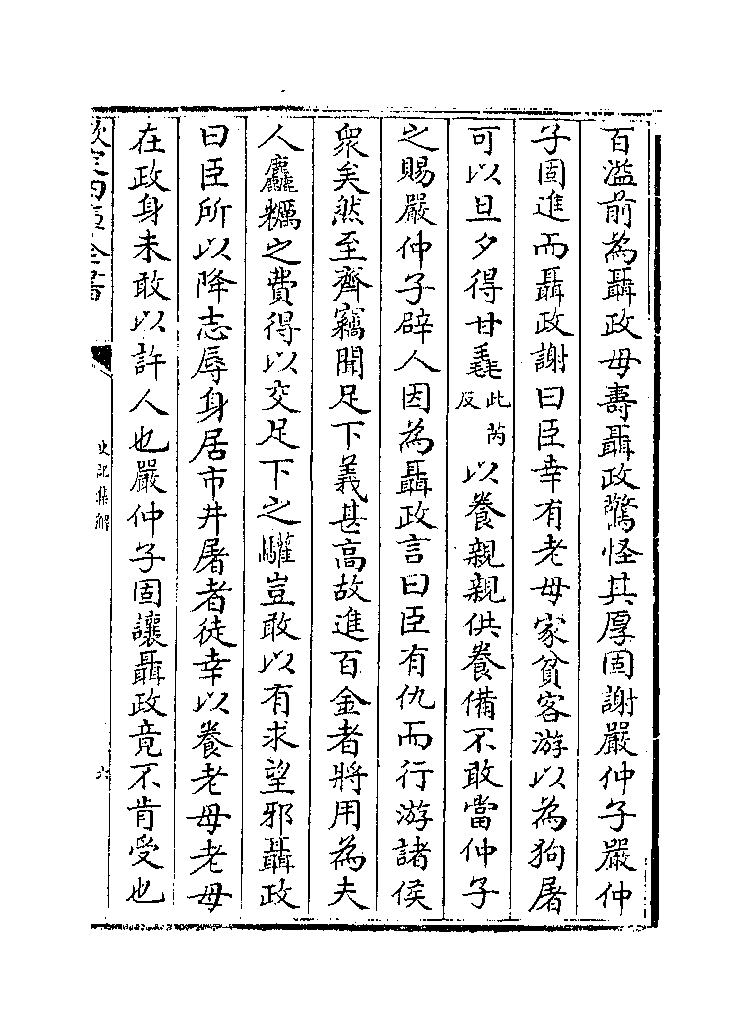 百溢前為聶政母壽聶政驚怪其厚固謝嚴仲子嚴仲
子固進而聶政謝曰臣幸有老母家貧客游以為狗屠
可以旦夕得甘毳此芮反以養親親供養備不敢當仲子
之賜嚴仲子辟人因為聶政言曰臣有仇而行游諸侯
衆矣然至齊竊聞足下義甚高故進百金者將用為夫
人麤糲之費得以交足下之驩豈敢以有求望邪聶政
曰臣所以降志辱身居市井屠者徒幸以養老母老母
在政身未敢以許人也嚴仲子固讓聶政竟不肯受也
欽定四庫全書
史記集解
六